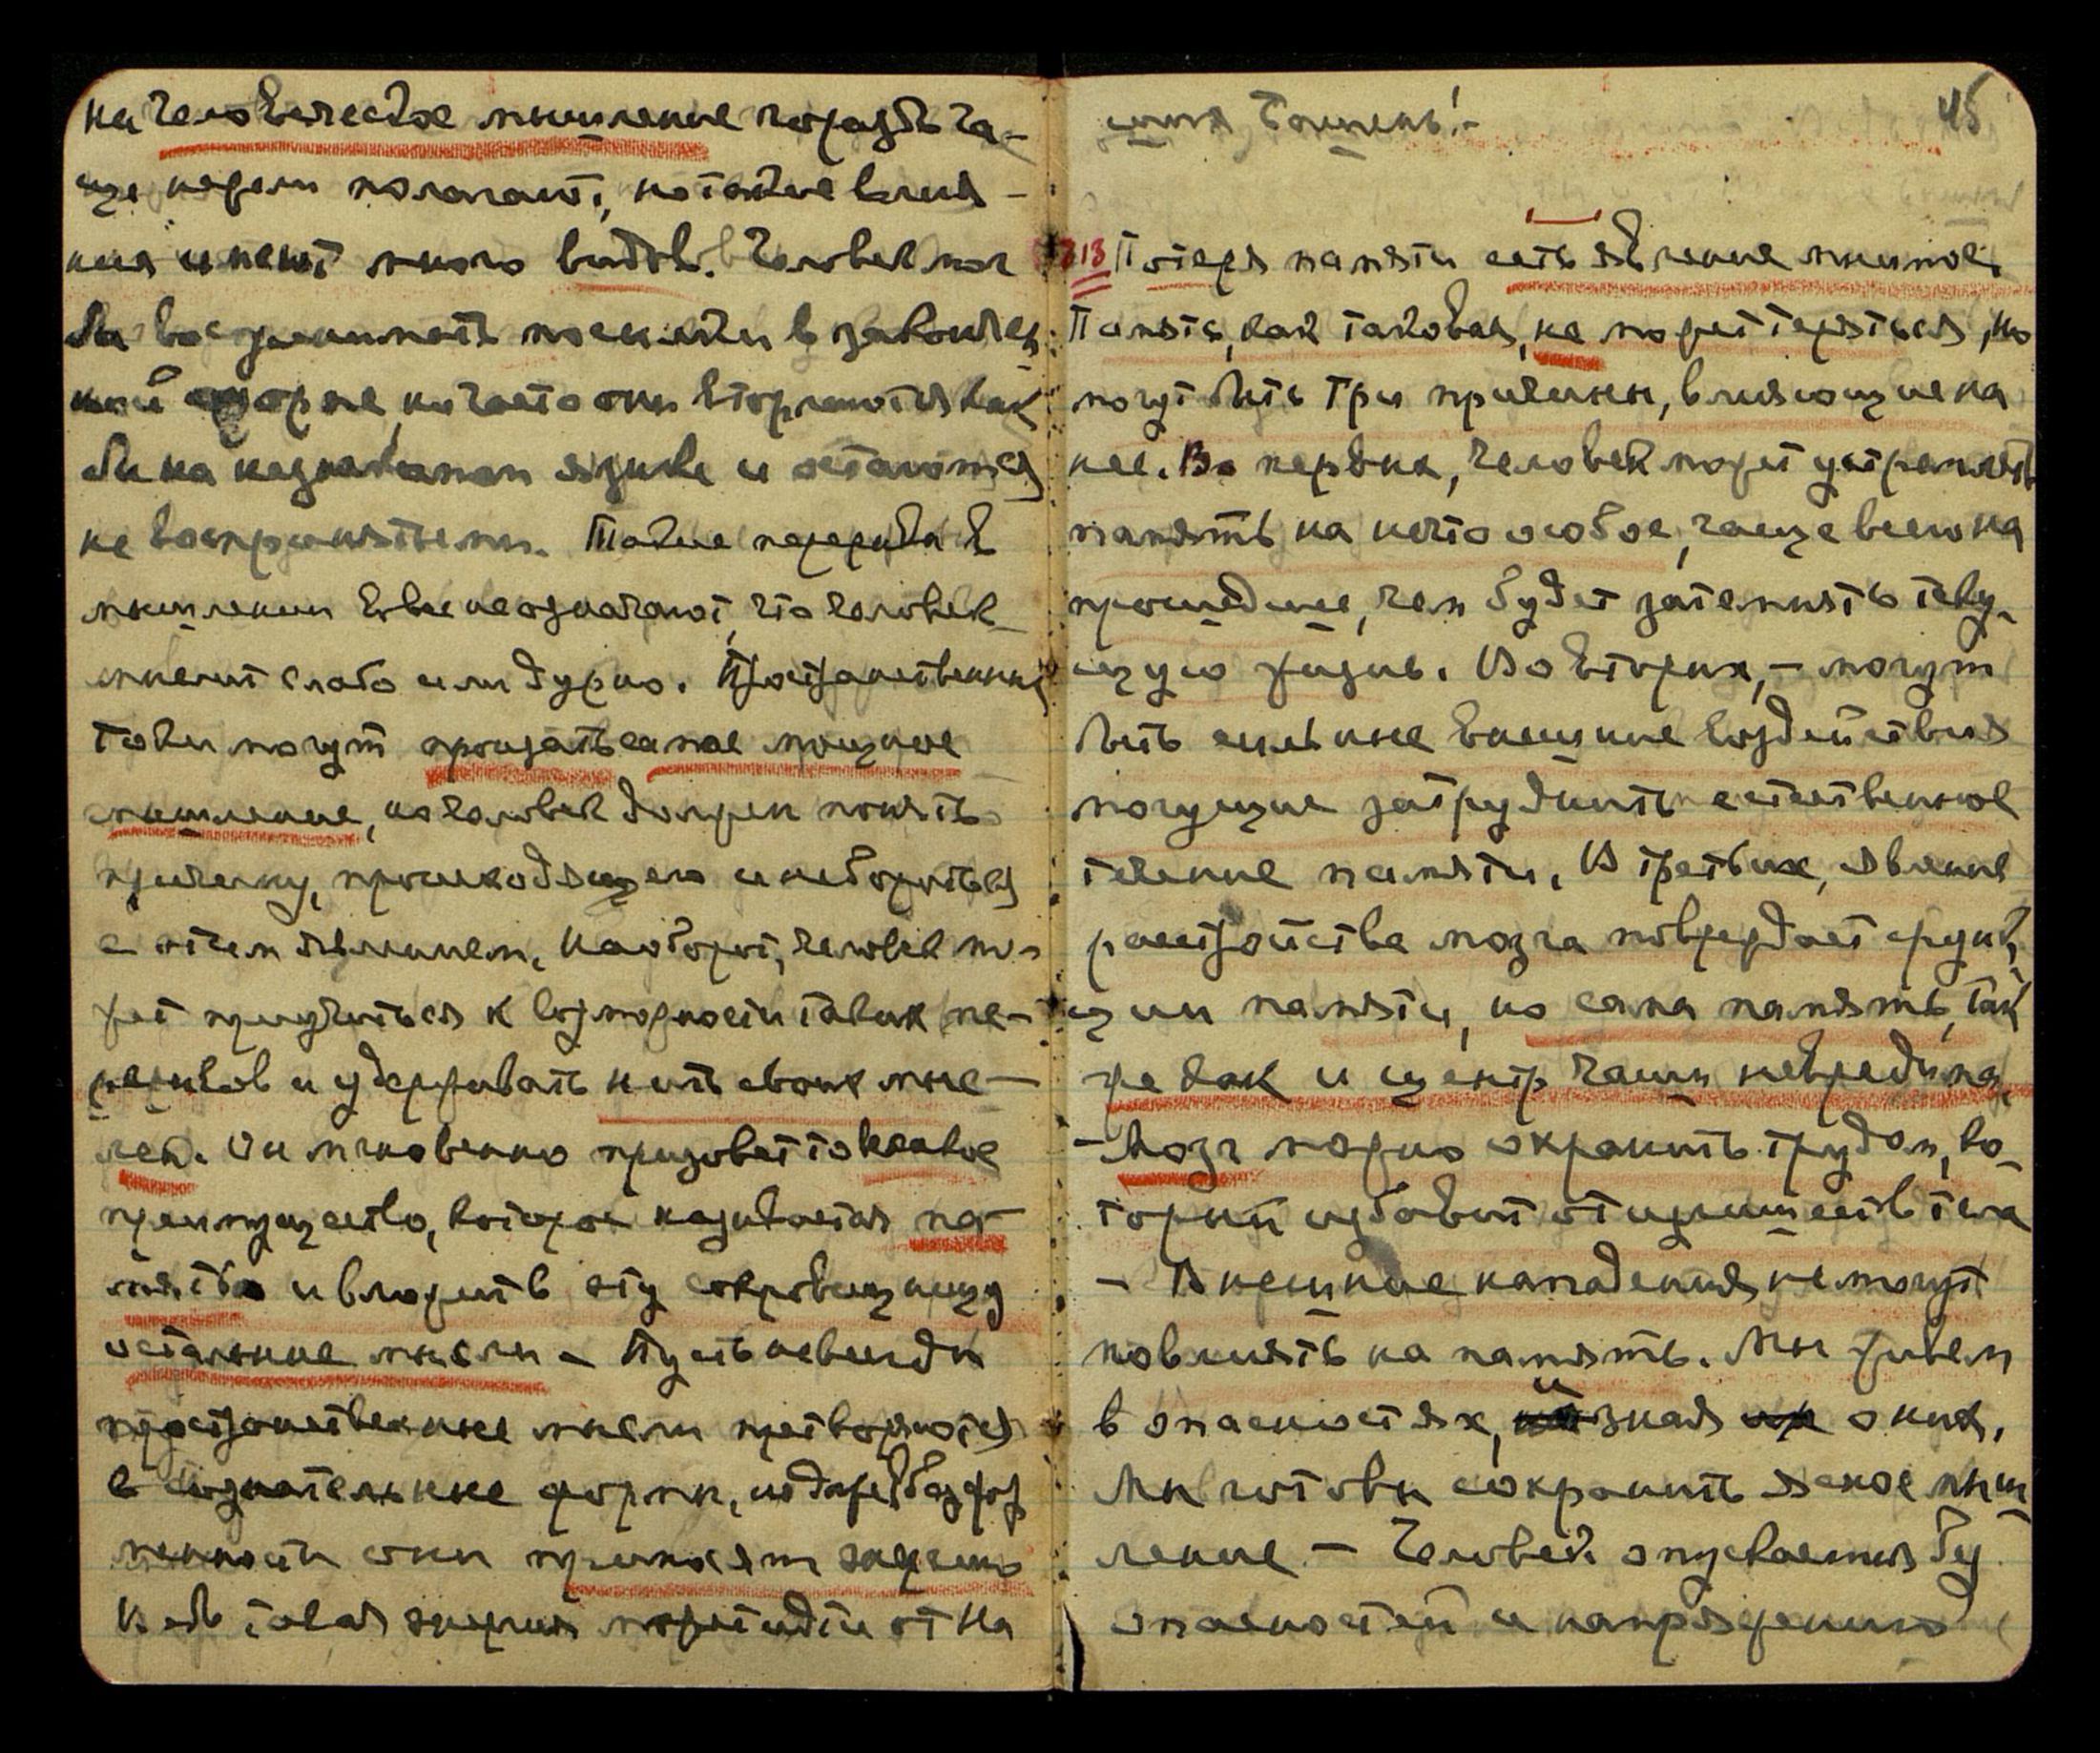 на человеческое мышление гораздо ча-
ще нежели полагают, но такие влия-
ния имеют много видов. Человек мог
бы воспринимать посылки в закончен
ной форме, но часто они вторгаются как
бы на незнакомом языке и остаются
не восприятыми. Такие перерывы в
мышлении вовсе не означают, что человек
мыслит слабо или дурно. Пространственные
токи могут пронзать самое мощное
мышление, но человек должен понять
причину, происходящего и не бороться
с этим явлением. Наоборот, человек мо-
жет приучиться к возможности таких пе-
рерывов и удерживать нить своих мыс-
лей. Он мгновенно призовет то ценное
преимущество, которое называется па-
мять и вложить в эту сокровищницу
остальные мысли – Пусть не всегда
пространственные мысли претворяются
в сознательные формы, но даже в безфор
менности они приносят энергию
Ведь такая энергия может идти от На
шей Башни! –
45
313 Потеря памяти есть явление мнимое.
Память, как таковая, не может теряться, но
могут быть три причины, влияющие на
нее. Во первых, человек может устремлять
память на нечто особое, чаще всего на
прошедшее, чем будет затемнять теку-
щую жизнь. Во вторых, – могут
быть сильные внешние воздействия
могущие затруднить естественное
течение памяти. В третьих, явление
расстройства мозга повреждает функ
ции памяти, но сама память, так
же как и центр чаши невредима.
– Мозг можно охранить трудом, ко-
торый избавит от излишеств тела
– Внешние нападения не могут
повлиять на память. Мы живем
в опасностях, зная о них.
Мы готовы сохранить ясное мыш
ление – Человек опускается без
опасностей и напряжения